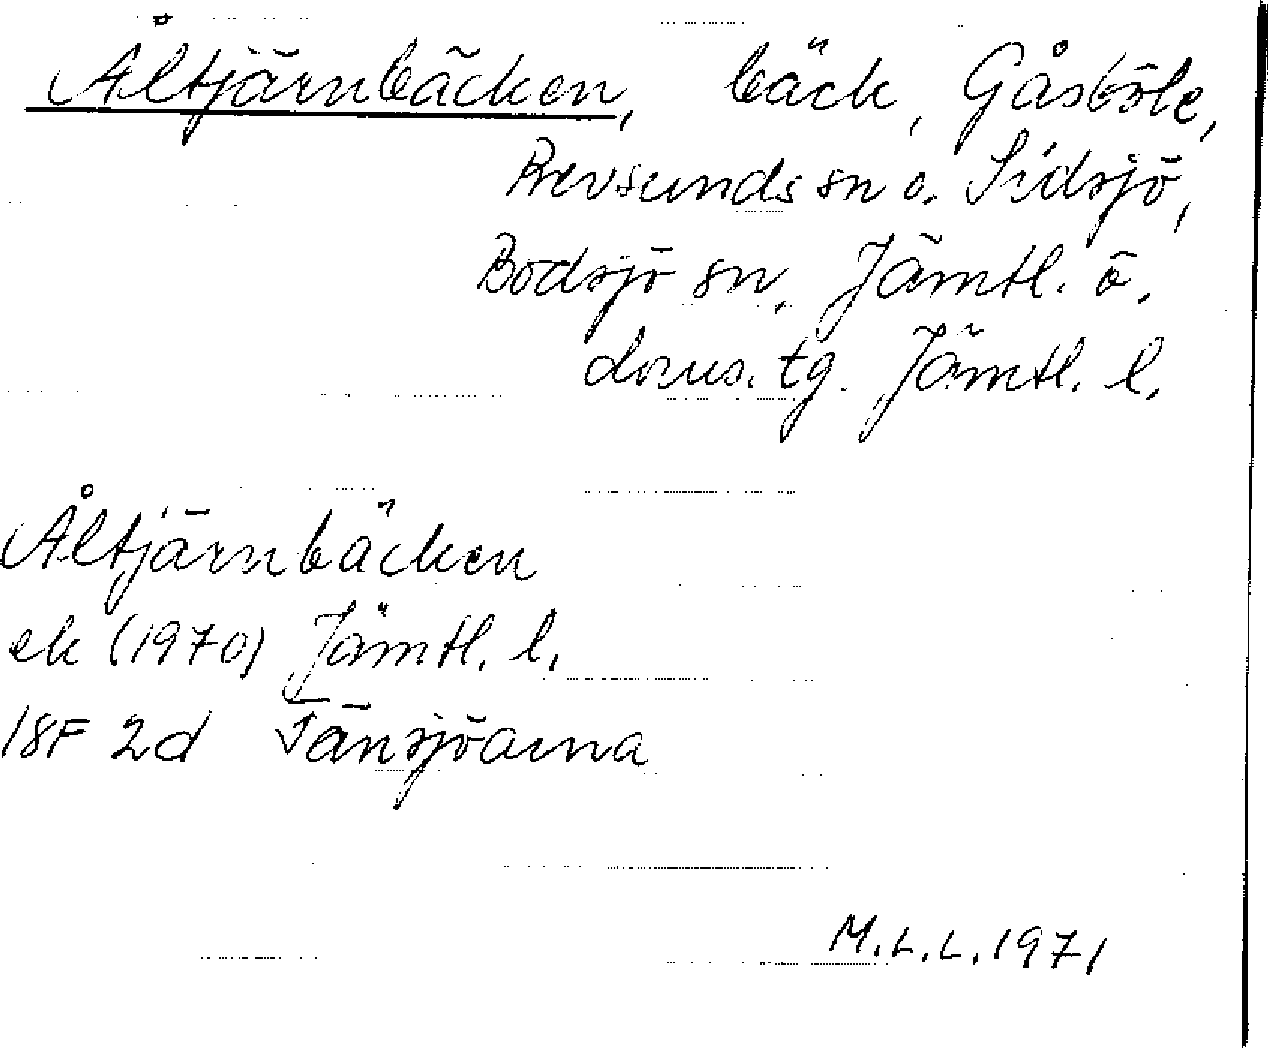 Åltjärnbäcken, bäck, Gåsböle,
Revsunds sn o. Sidsjö,
Bodsjö sn, Jämtl. ö.
doms. tg. Jämtl. l.
Åltjärnbäcken
ek (1970) Jämtl. l.
18F 2d Tänsjöarna
M.L.L. 1971